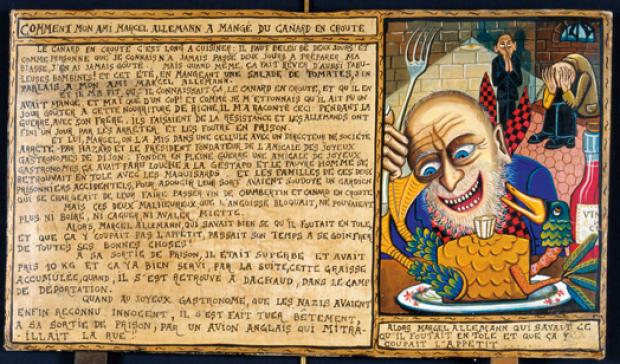 COMMENT MON AMI MARCEL ALLEMANN A MANGÉ DU CANARD EN CROUTE
LE CANARD EN CROUTE C'EST LONG A CUISINER: IL FAUT BELEU BÉ DEUX JOURS! ET
COMME PERSONNE QUE JE CONNAIS N'A JAMAIS PASSÉ DEUX JOURS A PRÉPARER MA
J'EN AI JAMAIS GOUTÉ. MAIS QUAND MEME, ÇA FAIT RÊVER D'AUSSI FABU-
LEUSES BOMBINES! ET CET ÉTÉ, EN MANGEANT UNE SALADE DE TOMATES, J'EN
PARLAIS A MON AMI MARCEL ALLEMANN.
ET IL M'A DIT QU'IL CONNAISSAIT ÇA, LE CANARD EN CROUTE, ET QU'IL EN
AVAIT MANGÉ, ET MAI QUE D'UN COP! ET COMME JE M'ÉTONNAIS QU'IL AIT PU UN
JOUR GOUTER A CETTE NOURRITURE DE RICHE, IL M'A RACONTÉ CECI: PENDANT LA
GUERRE, AVEC SON FRÈRE, ILS FAISAIENT DE LA RÉSISTANCE ET LES ALLEMANDS ONT
FINI UN JOUR PAR LES ARRETER ET LES FOUTRE EN PRISON.
ET LUI, MARCEL, ON L'A MIS DANS UNE CELLULE AVEC UN DIRECTEUR DE SOCIÉTÉ
ARRETÉ PAR HASARD ET LE PRÉSIDENT FONDATEUR DE L'AMICALE DES JOYEUX
GASTRONOMES DE DIJON: FONDER EN PLEINE GUERRE UNE AMICALE DE JOYEUX
GASTRONOMES ÇA AVAIT PARU LOUCHE A LA GESTAPO ET LE PAUVRE HOMME SE
RETROUVAIT EN TOLE AVEC LES MAQUISARDS. ET LES FAMILLES DE CES DEUX
PRISONNIERS ACCIDENTELS, POUR ADOUCIR LEUR SORT, AVAIENT SOUDOYÉ UN GARDIEN
QUI SE CHARGEAIT DE LEUR FAIRE PASSER VIN DE CHAMBERTIN ET CANARD EN CROUTE.
MAIS CES DEUX MALHEUREUX QUE L'ANGOISSE BLOQUAIT, NE POUVAIENT
PLUS NI BOIRE, NI CAGUER NI AVALER MIETTE.
ALORS MARCEL ALLEMANN, QUI SAVAIT BIEN CE QU'IL FOUTAIT EN TOLE,
ET QUE ÇA Y COUPAIT PAS L'APPÉTIT, PASSAIT SON TEMPS A SE GOINFRER
DE TOUTES CES BONNES CHOSES!
A SA SORTIE DE PRISON, IL ÉTAIT SUPERBE ET AVAIT
PRIS 10 KG ET ÇA Y'A BIEN SERVI PAR LA SUITE, CETTE GRAISSE
ACCUMULÉE, QUAND, IL S'EST RETROUVÉ A DACHAUD, DANS LE CAMP
DE DÉPORTATION.
QUAND AU JOYEUX GASTRONOME, QUE LES NAZIS AVAIENT
ENFIN RECONNU INNOCENT, IL S'EST FAIT TUER, BETEMENT,
A SA SORTIE DE PRISON, PAR UN AVION ANGLAIS QUI MITRA-
ILLAIT LA RUE!!
VIN
ALORS MARCEL ALLEMANN QUI SAVAIT CE
QU'IL FOUTAIT EN TOLE ET QUE ÇA Y
COUPAIT L'APPÉTIT